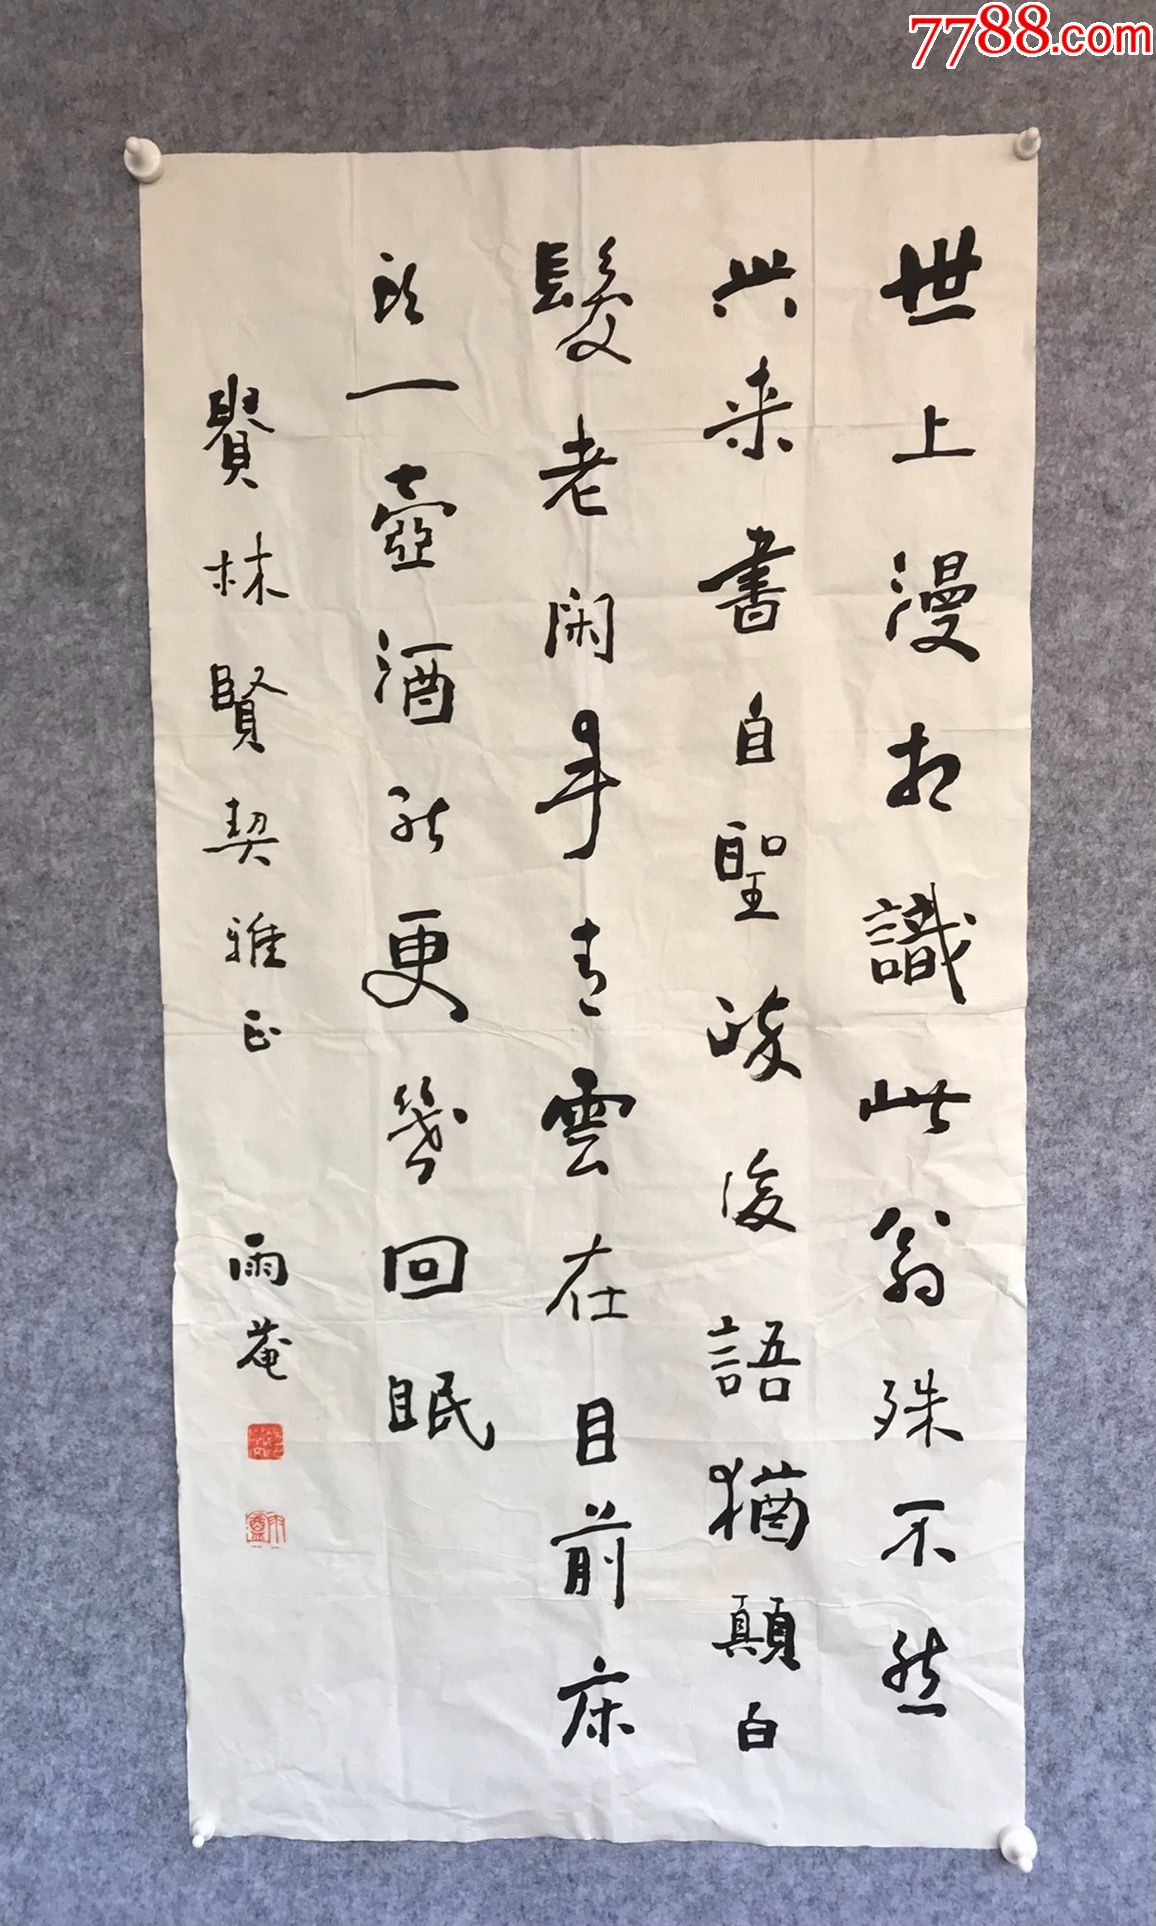 7788.com
世上漫相識此翁殊不然
興来書自聖醉後語猶顛白
髮老閑事青雲在目前床
頭一壺酒能更幾回眠
林賢契雅正 雨菴
雨盦